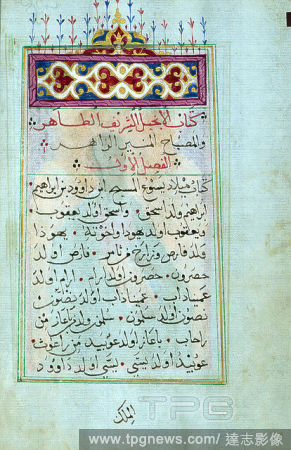 كتاب الانجيل الشريف الطاهر
والمصباح المنير الزاهر
الفصل الاول
كتاب ميلاد يسوع المسيح ابن داوود بن ابراهيم
ابراهيم ولد اسحق واسحق اولد يعقوب
ويعقوب اولد يهودا واخوته يهودا
ولد فارص وزارح من ثامر فارص اولد
حصرون حصرون اولد ارام ارام اولد
عميناداب عميناداب اولد نصون
نصون اولد سلمون سلمون ولد باعاز من
راحاب باعاز اولد عوبيد من راعوث
عوبيد اولد يسّي يسّي اولد داوود
الملك
TPG
www.tpgnews.com/ 達志影像